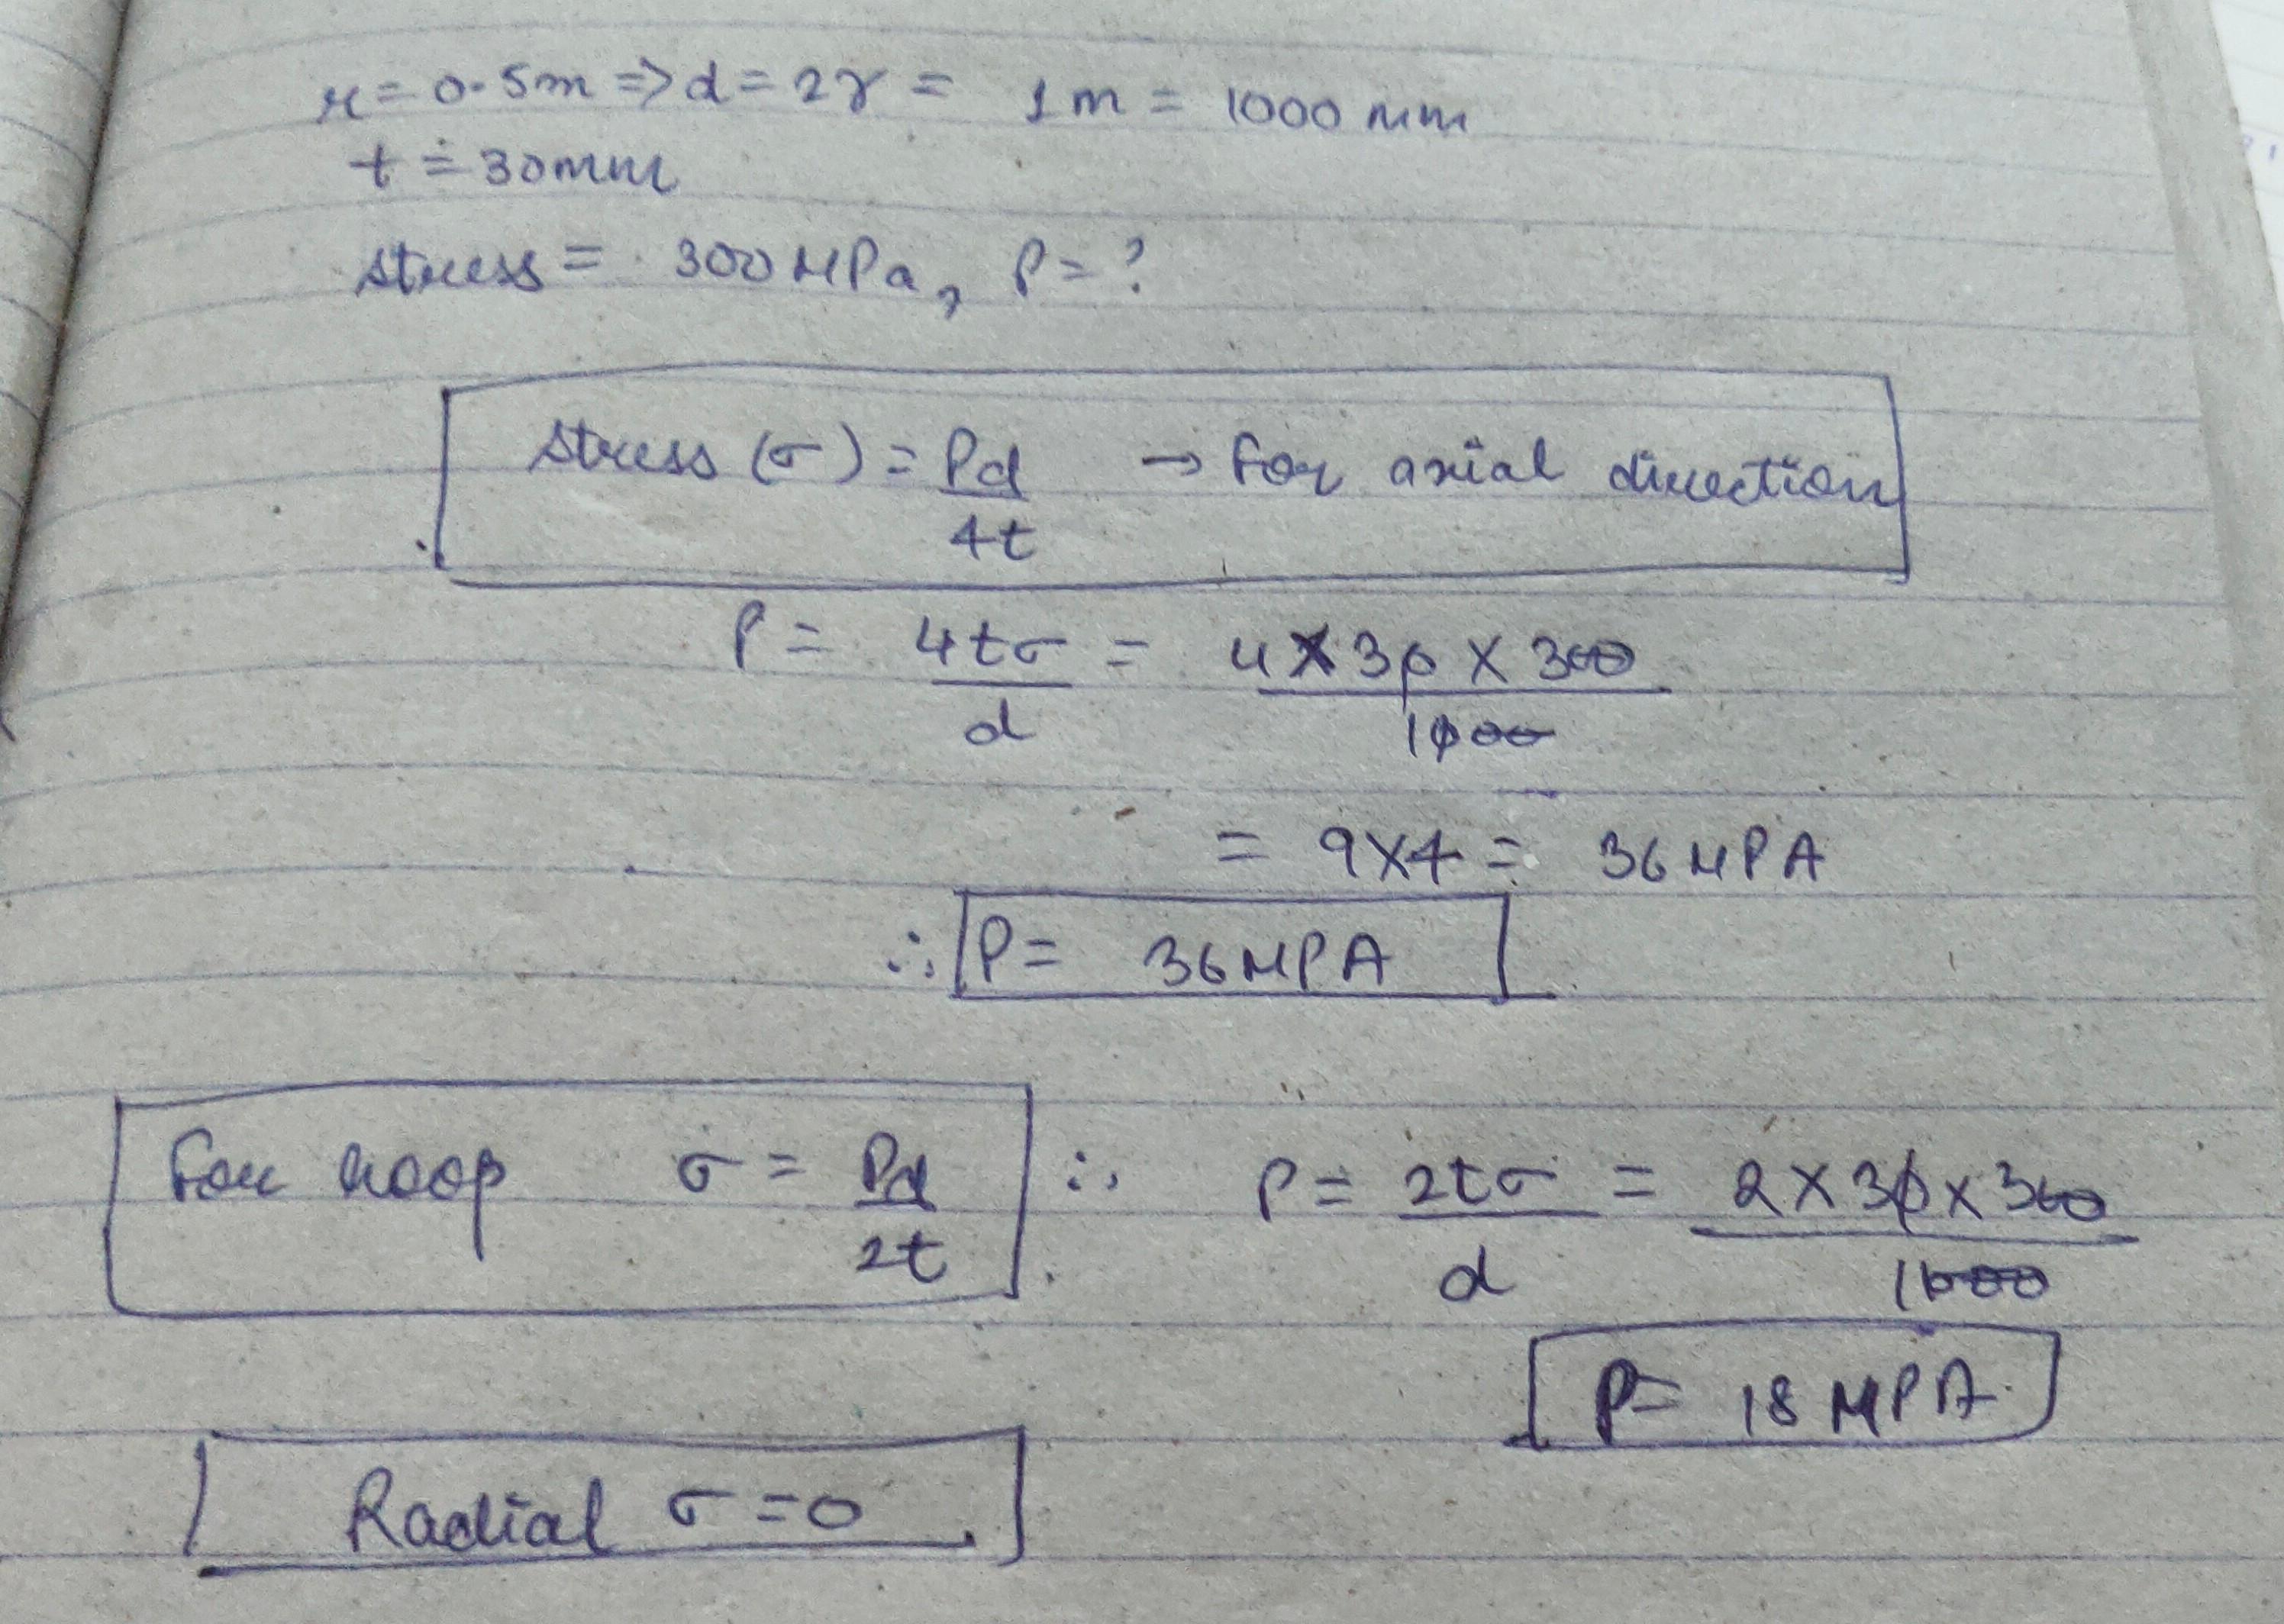 r = 0.5m => d = 2r = 1m = 1000 mm
t = 30mm
stress = 300 MPa, P = ?
stress (σ) = Pd/4t → For axial direction
P = 4tσ/d = 4×30×300/1000
= 9×4 = 36 MPA
∴ P = 36 MPA
For hoop σ = Pd/2t ∴ P = 2tσ/d = 2×30×300/1000
P = 18 MPA
Radial σ = 0